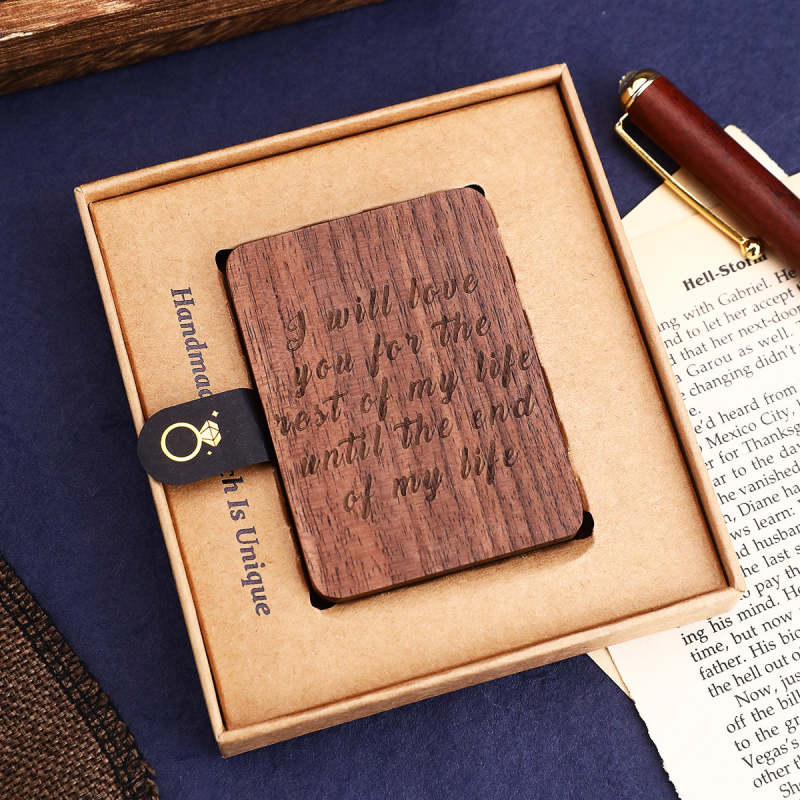 I will love
you for the
rest of my life
until the end
of my life
Is Unique
Hell-Storm
with Gabriel. He
nd to let her accept
that her next-door
a Garou as well.
changing didn't
e'd heard from
Mexico City,
er for Thanksg
ar to the da
he vanished
Diane ha
ws learn:
husban
the last s
pay th
ing his mind. He
time, but now
father. His bio
the hell out o
Now, jus
off the bill
to the gr
Vegas's
other th